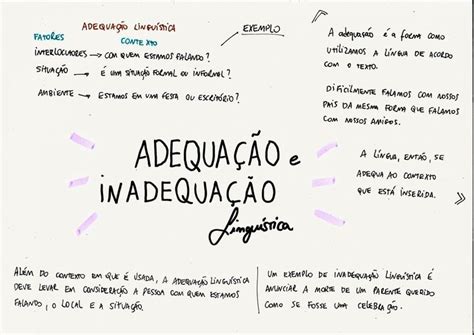 ADEQUAÇÃO LINGUÍSTICA
FATORES
CONTEXTO
INTERLOCUTORES → COM QUEM ESTAMOS FALANDO?
SITUAÇÃO → É UMA SITUAÇÃO FORMAL OU INFORMAL?
AMBIENTE → ESTAMOS EM UMA FESTA OU ESCRITÓRIO?
EXEMPLO
A ADEQUAÇÃO É A FORMA COMO
UTILIZAMOS A LÍNGUA DE ACORDO
COM O TEXTO.
DIFICILMENTE FALAMOS COM NOSSOS
PAIS DA MESMA FORMA QUE FALAMOS
COM NOSSOS AMIGOS.
A LÍNGUA, ENTÃO, SE
ADEQUA AO CONTEXTO
QUE ESTÁ INSERIDA.
ADEQUAÇÃO e
INADEQUAÇÃO
Linguística
ALÉM DO CONTEXTO EM QUE É USADA, A ADEQUAÇÃO LINGUÍSTICA
DEVE LEVAR EM CONSIDERAÇÃO A PESSOA COM QUEM ESTAMOS
FALANDO, O LOCAL E A SITUAÇÃO.
UM EXEMPLO DE INADEQUAÇÃO LINGUÍSTICA É
ANUNCIAR A MORTE DE UM PARENTE QUERIDO
COMO SE FOSSE UMA CELEBRAÇÃO.